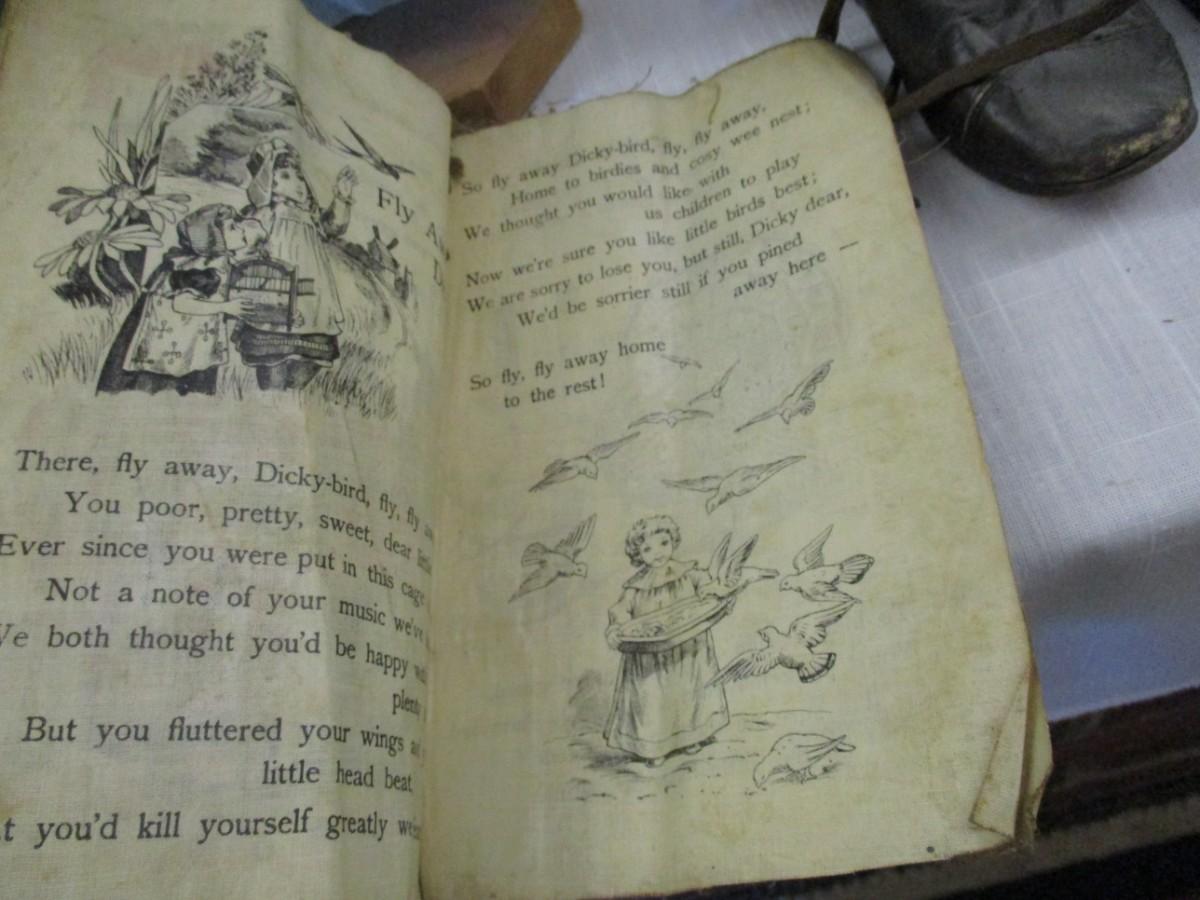 Fly
There, fly away, Dicky-bird, fly, fly
You poor, pretty, sweet, dear
Ever since you were put in this cage
Not a note of your music we've
We both thought you'd be happy
But you fluttered your wings
little head beat
you'd kill yourself greatly
So fly away Dicky-bird, fly, fly away,
Home to birdies and cosy wee nest;
We thought you would like with
us children to play
Now we're sure you like little birds best;
We are sorry to lose you, but still, Dicky dear,
We'd be sorrier still if you pined
away here —
So fly, fly away home
to the rest!